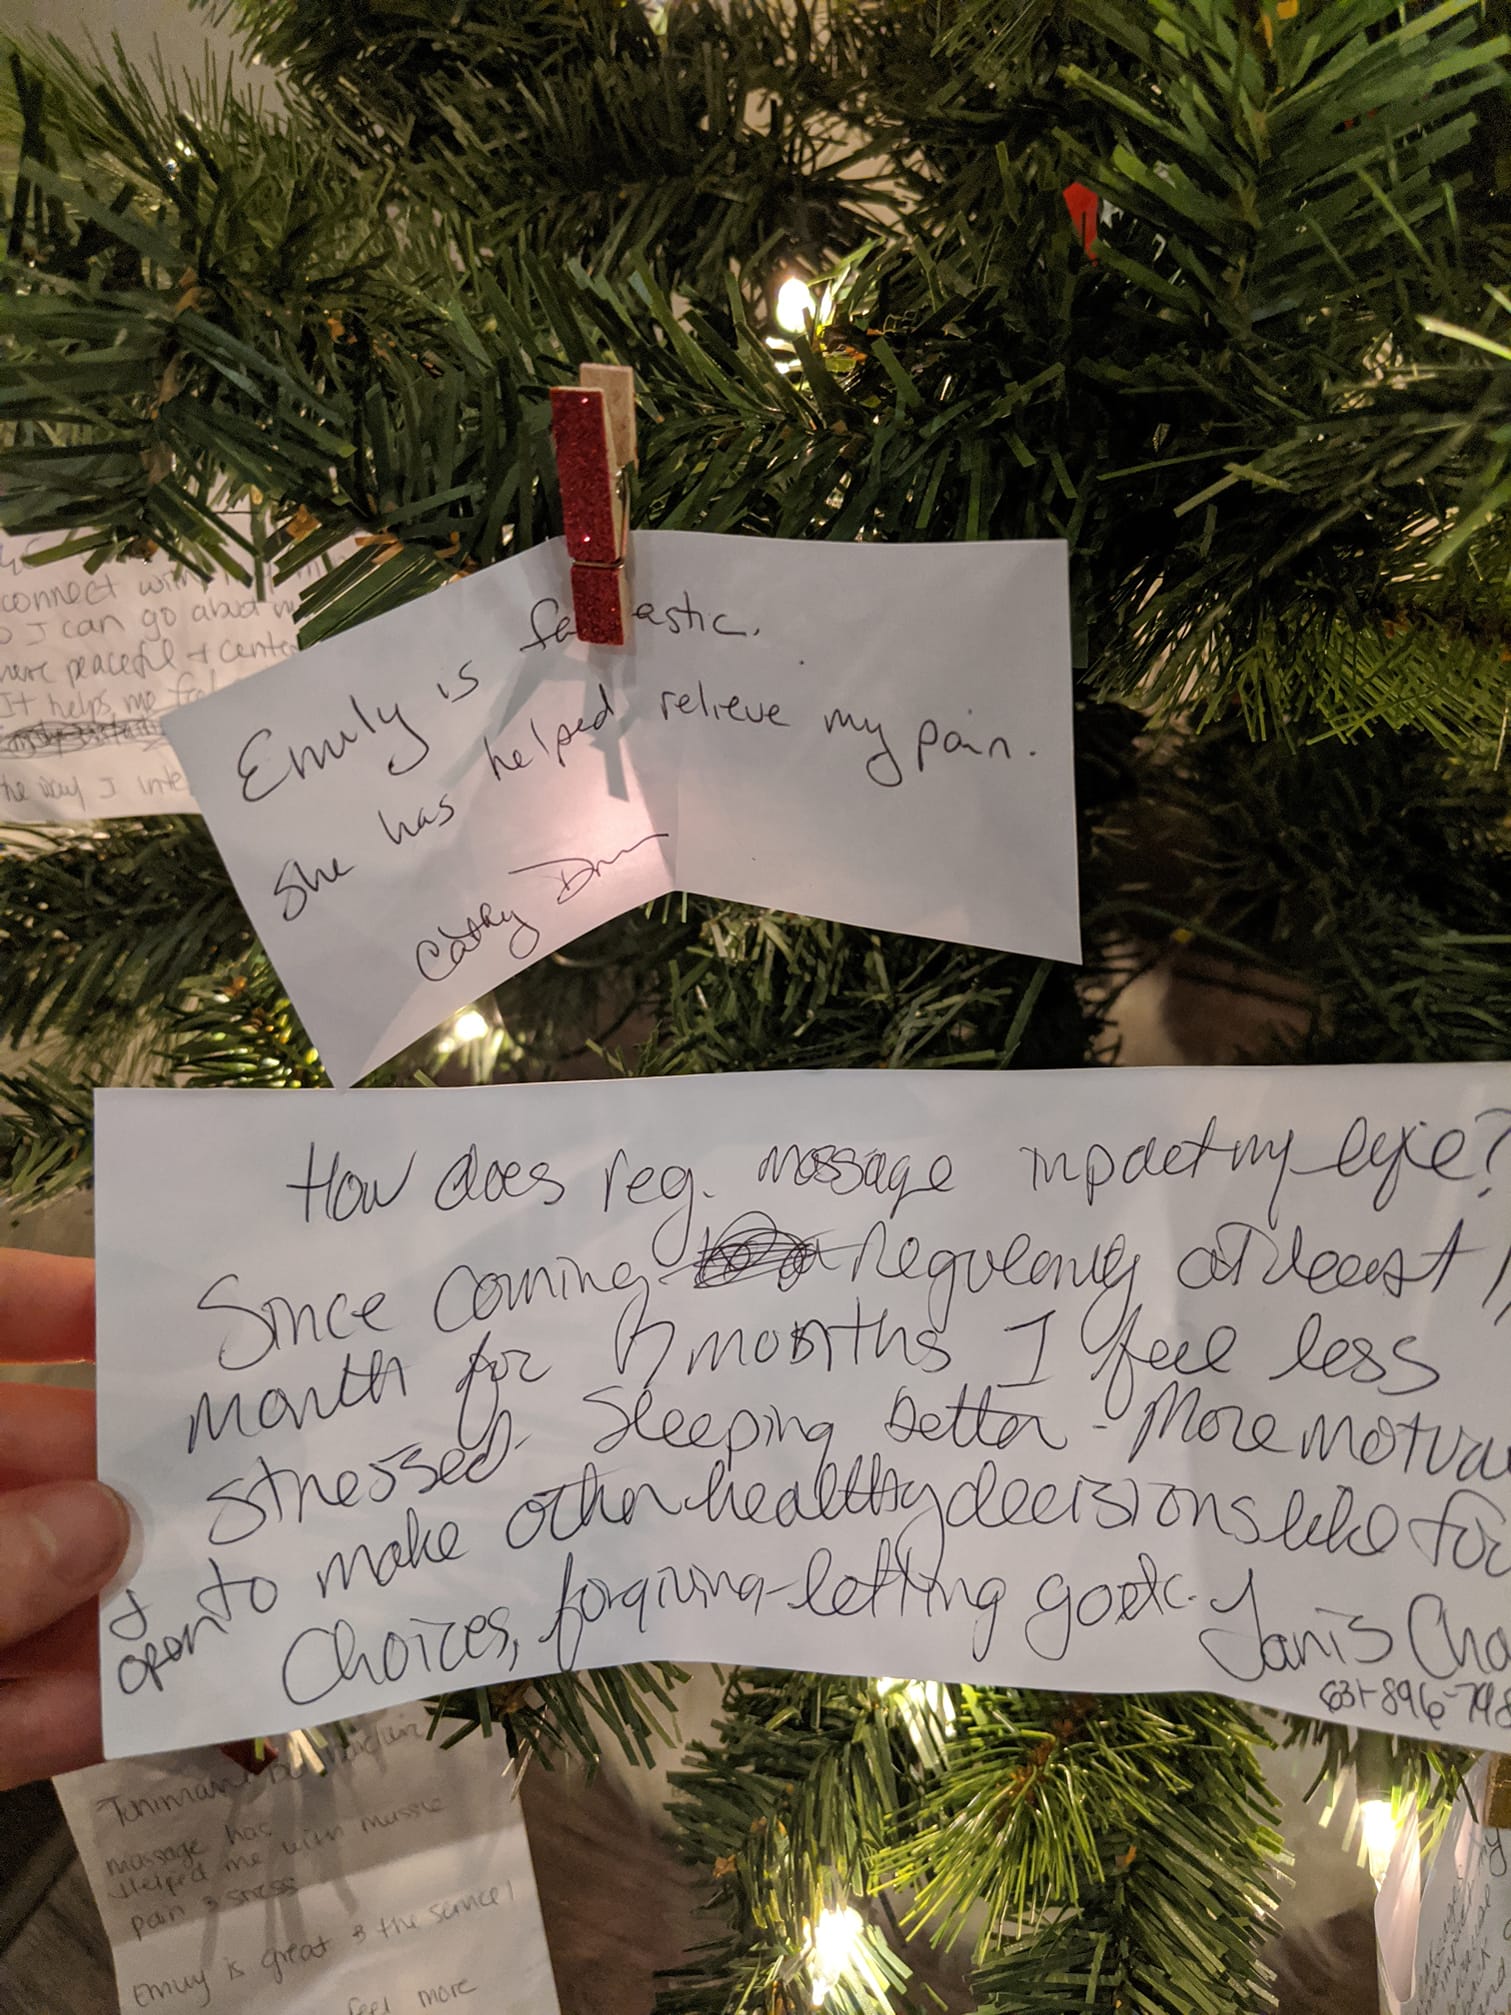 connect with
I can go about
more peaceful + cente
It helps me
the way I inte
Emily is fa astic.
She has helped relieve my pain.
Cathy
How does reg. massage impact my life?
Since coming regularly at least
month for months I feel less
stressed - Sleeping better - More motiva
& open to make other healthy decisions like foo
Choices, forgiving - letting go etc. Janis Cha
631-896-74
massage has
Helped me with muscle
pain & stress
Emily is great & the service!
feel more